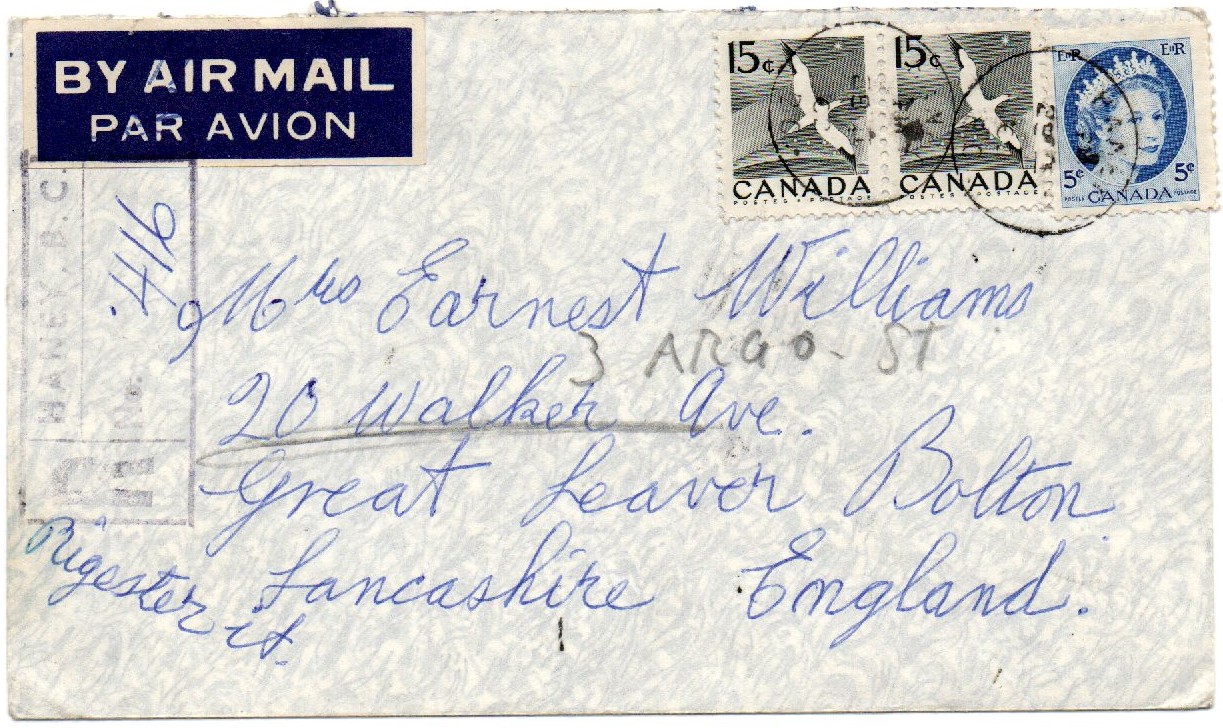 BY AIR MAIL
PAR AVION
15¢
CANADA
POSTES POSTAGE
15¢
CANADA
POSTES POSTAGE
E II R
E II R
5¢
5¢
POSTES CANADA POSTAGE
HANEY, B.C.
No.
R
416
Mrs Earnest Williams
3 ARGO. ST
20 Walker Ave.
Great Leaver Bolton
Lancashire England.
Rigester it.